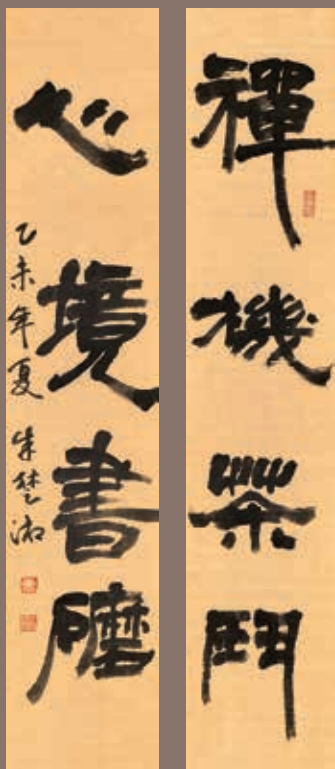 禪機茶鬥
心境書磨
乙未年夏 朱楚湘